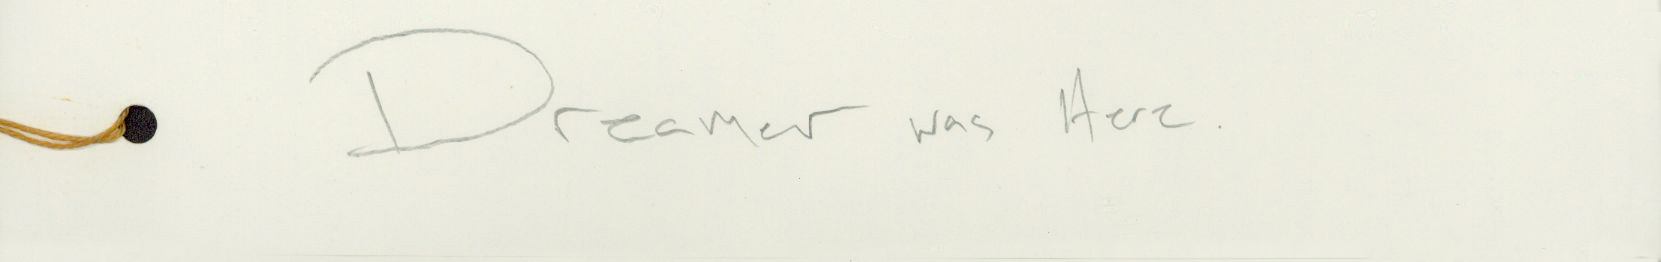 Dreamer was Here.